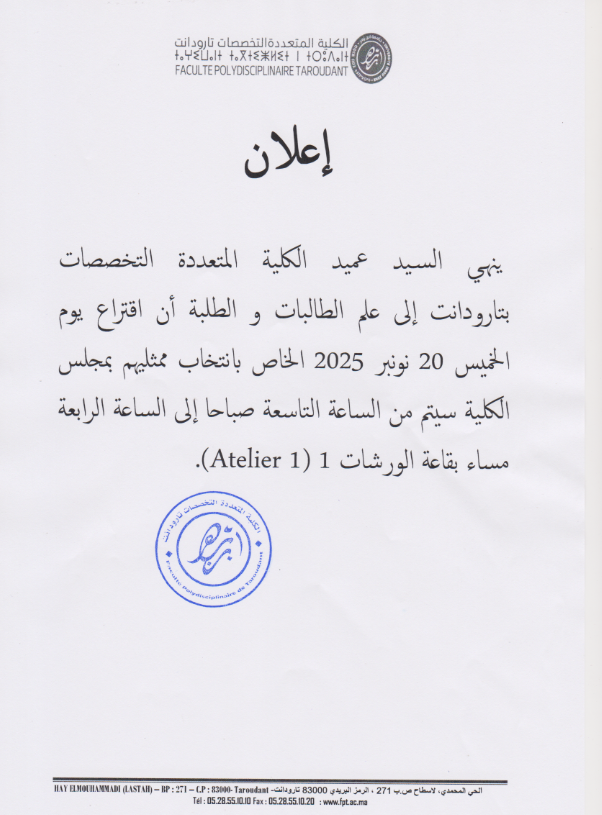 الكلية المتعددة التخصصات تارودانت
ⵜⴰⵖⵉⵡⴰⵏⵜ ⵜⴰⴳⵜⵉⵣⵍⵉⵜ ⵏ ⵜⵔⵓⴷⴰⵏⵜ
FACULTE POLYDISCIPLINAIRE TAROUDANT
إعلان
ينهي السيد عميد الكلية المتعددة التخصصات
بتارودانت إلى علم الطالبات و الطلبة أن اقتراع يوم
الخميس 20 نونبر 2025 الخاص بانتخاب ممثليهم بمجلس
الكلية سيتم من الساعة التاسعة صباحا إلى الساعة الرابعة
مساء بقاعة الورشات 1 (Atelier 1).
الكلية المتعددة التخصصات تارودانت
Faculté Polydisciplinaire de Taroudant
HAY ELMOUHAMMADI (LASTAH) – BP : 271 – C.P : 83000- Taroudant الحي المحمدي، لاسطاح ص.ب 271 ، الرمز البريدي 83000 تارودانت-
Tél : 05.28.55.10.10 Fax : 05.28.55.10.20 : www.fpt.ac.ma